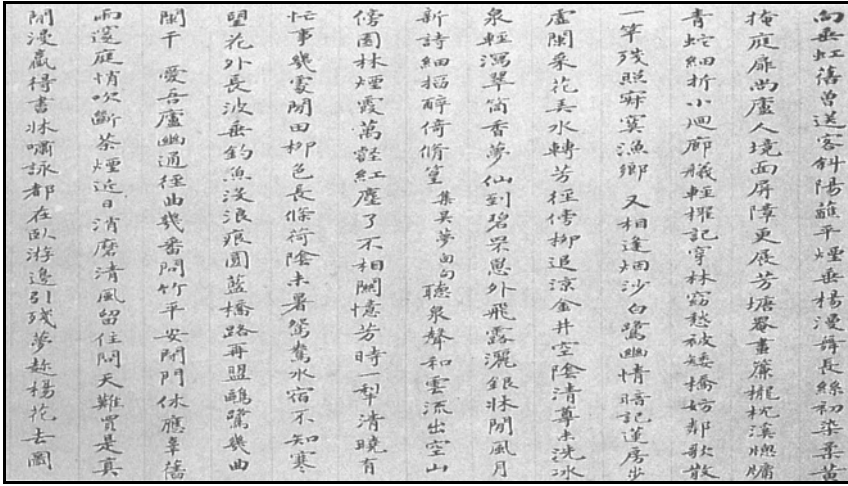 向垂虹舊曾送客斜陽蘸平煙垂楊漫舞長絲初染柔黃
掩庭扉尚盧人境面屏障更展芳塘罨畫簾櫳枕溪牕牖
青蛇細折小迴廊艤輕櫂記穿林窈愁被矮橋妨鄰歌散
一竿殘照寂寞漁鄉 又相逢烟沙白鷺幽情暗記蓮房步
虛闌采花弄水轉芳徑傍柳追涼金井空陰清尊未洗冰
泉輕瀉翠筒香夢仙到碧罘罳外飛露灑銀牀閒風月
新詩細搯醉倚脩篁 集吳夢窗句 聽泉聲和雲流出空山
傍園林煙霞萬壑紅塵了不相關憶芳時一犁清曉有
忙事幾處閒田柳色長條荷陰未暑鴛鴦水宿不知寒
望花外長波垂釣魚沒浪痕圓藍橋路再盟鷗鷺幾曲
闌干 愛吾廬幽通徑曲幾番問竹平安閉門休應辜舊
雨邃庭悄吹斷茶煙近日消磨清風留住問天難買是真
閒漫贏得書牀嘯詠都在臥游邊引殘夢趁楊花去